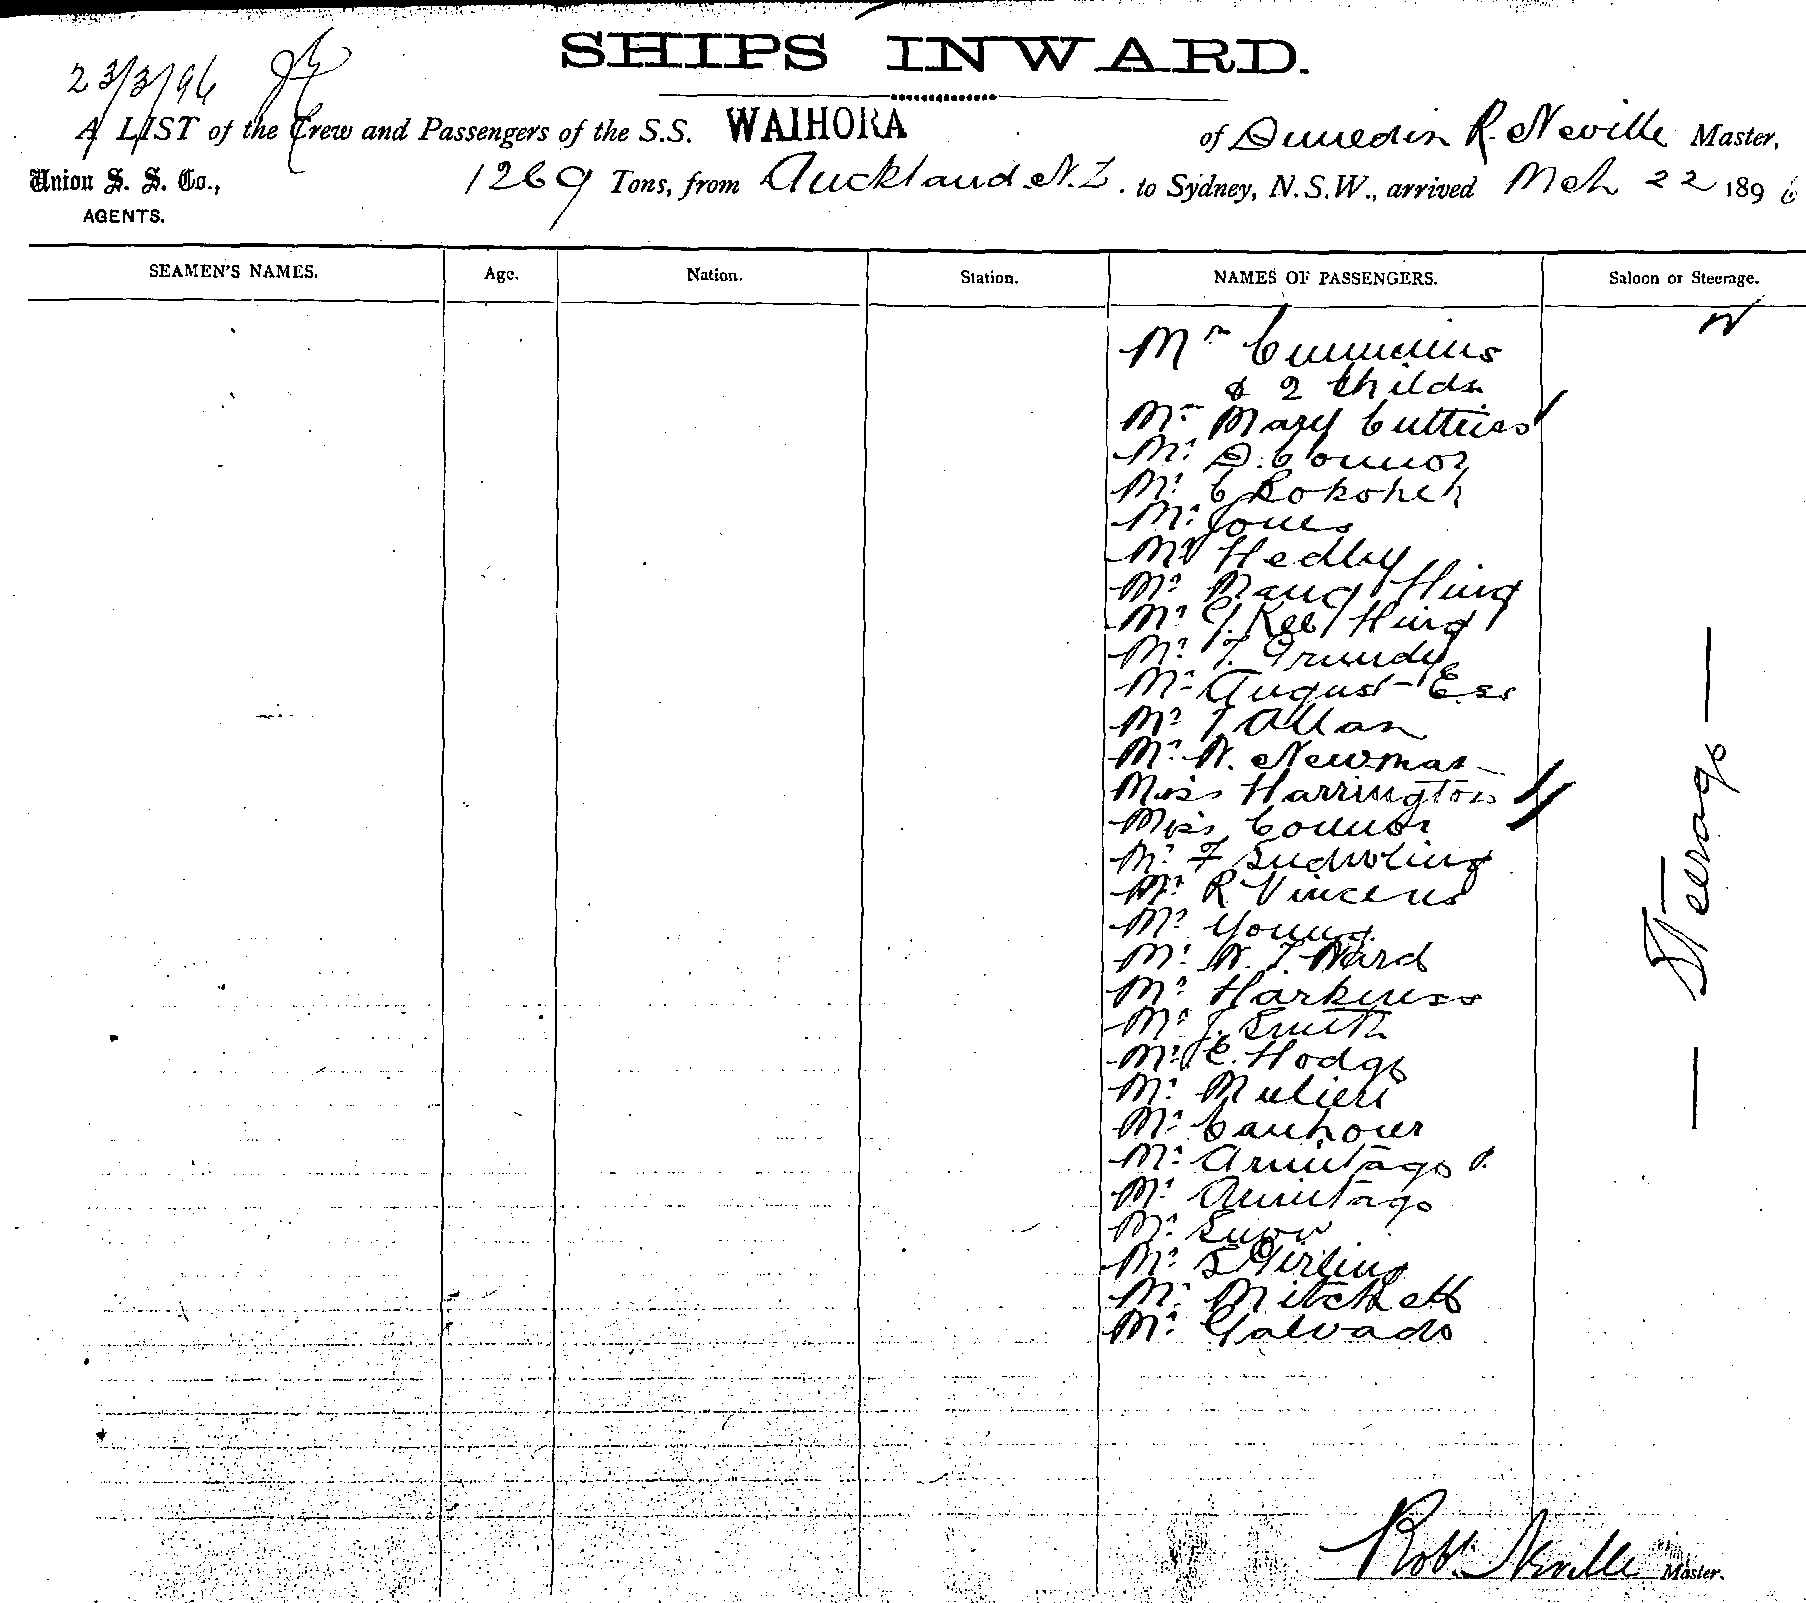 SHIPS INWARD.
23/3/96
A LIST of the Crew and Passengers of the S.S. WAIHORA of Dunedin R. Neville Master,
Union S. S. Co., 1269 Tons, from Auckland N.Z. to Sydney, N.S.W., arrived Mch 22 1896
AGENTS.
SEAMEN'S NAMES. Age. Nation. Station. NAMES OF PASSENGERS. Saloon or Steerage.
Mrs Cummins
& 2 Childn
Mary
Mr D. Connor
Mr C
Mr Jones
Mr Hedley
Mr Hing
Mr Kee Hing
Mr T. Grundy
Mr August
Mr J Allan
Mr W. Newman
Miss Harrington
Miss Connor
Mr F
Mr R Vincent
Mr Young
Mr W. J. Ward
Mr Harkness
Mr J. Smith
Mr E. Hodge
Mr
Mr
Mr Armitage
Mr Armitage
Mr Snow
Mr Stirling
Mr Mitchell
Mr Galvado
— Steerage —
Robt Neville Master.